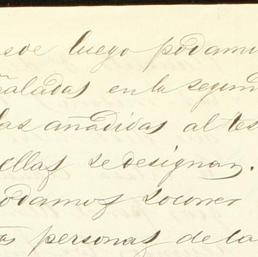 esde luego podamo
ñaladas en la segun
las añadidas al tes
ellas se designan.
odamos socorrer
as personas de la